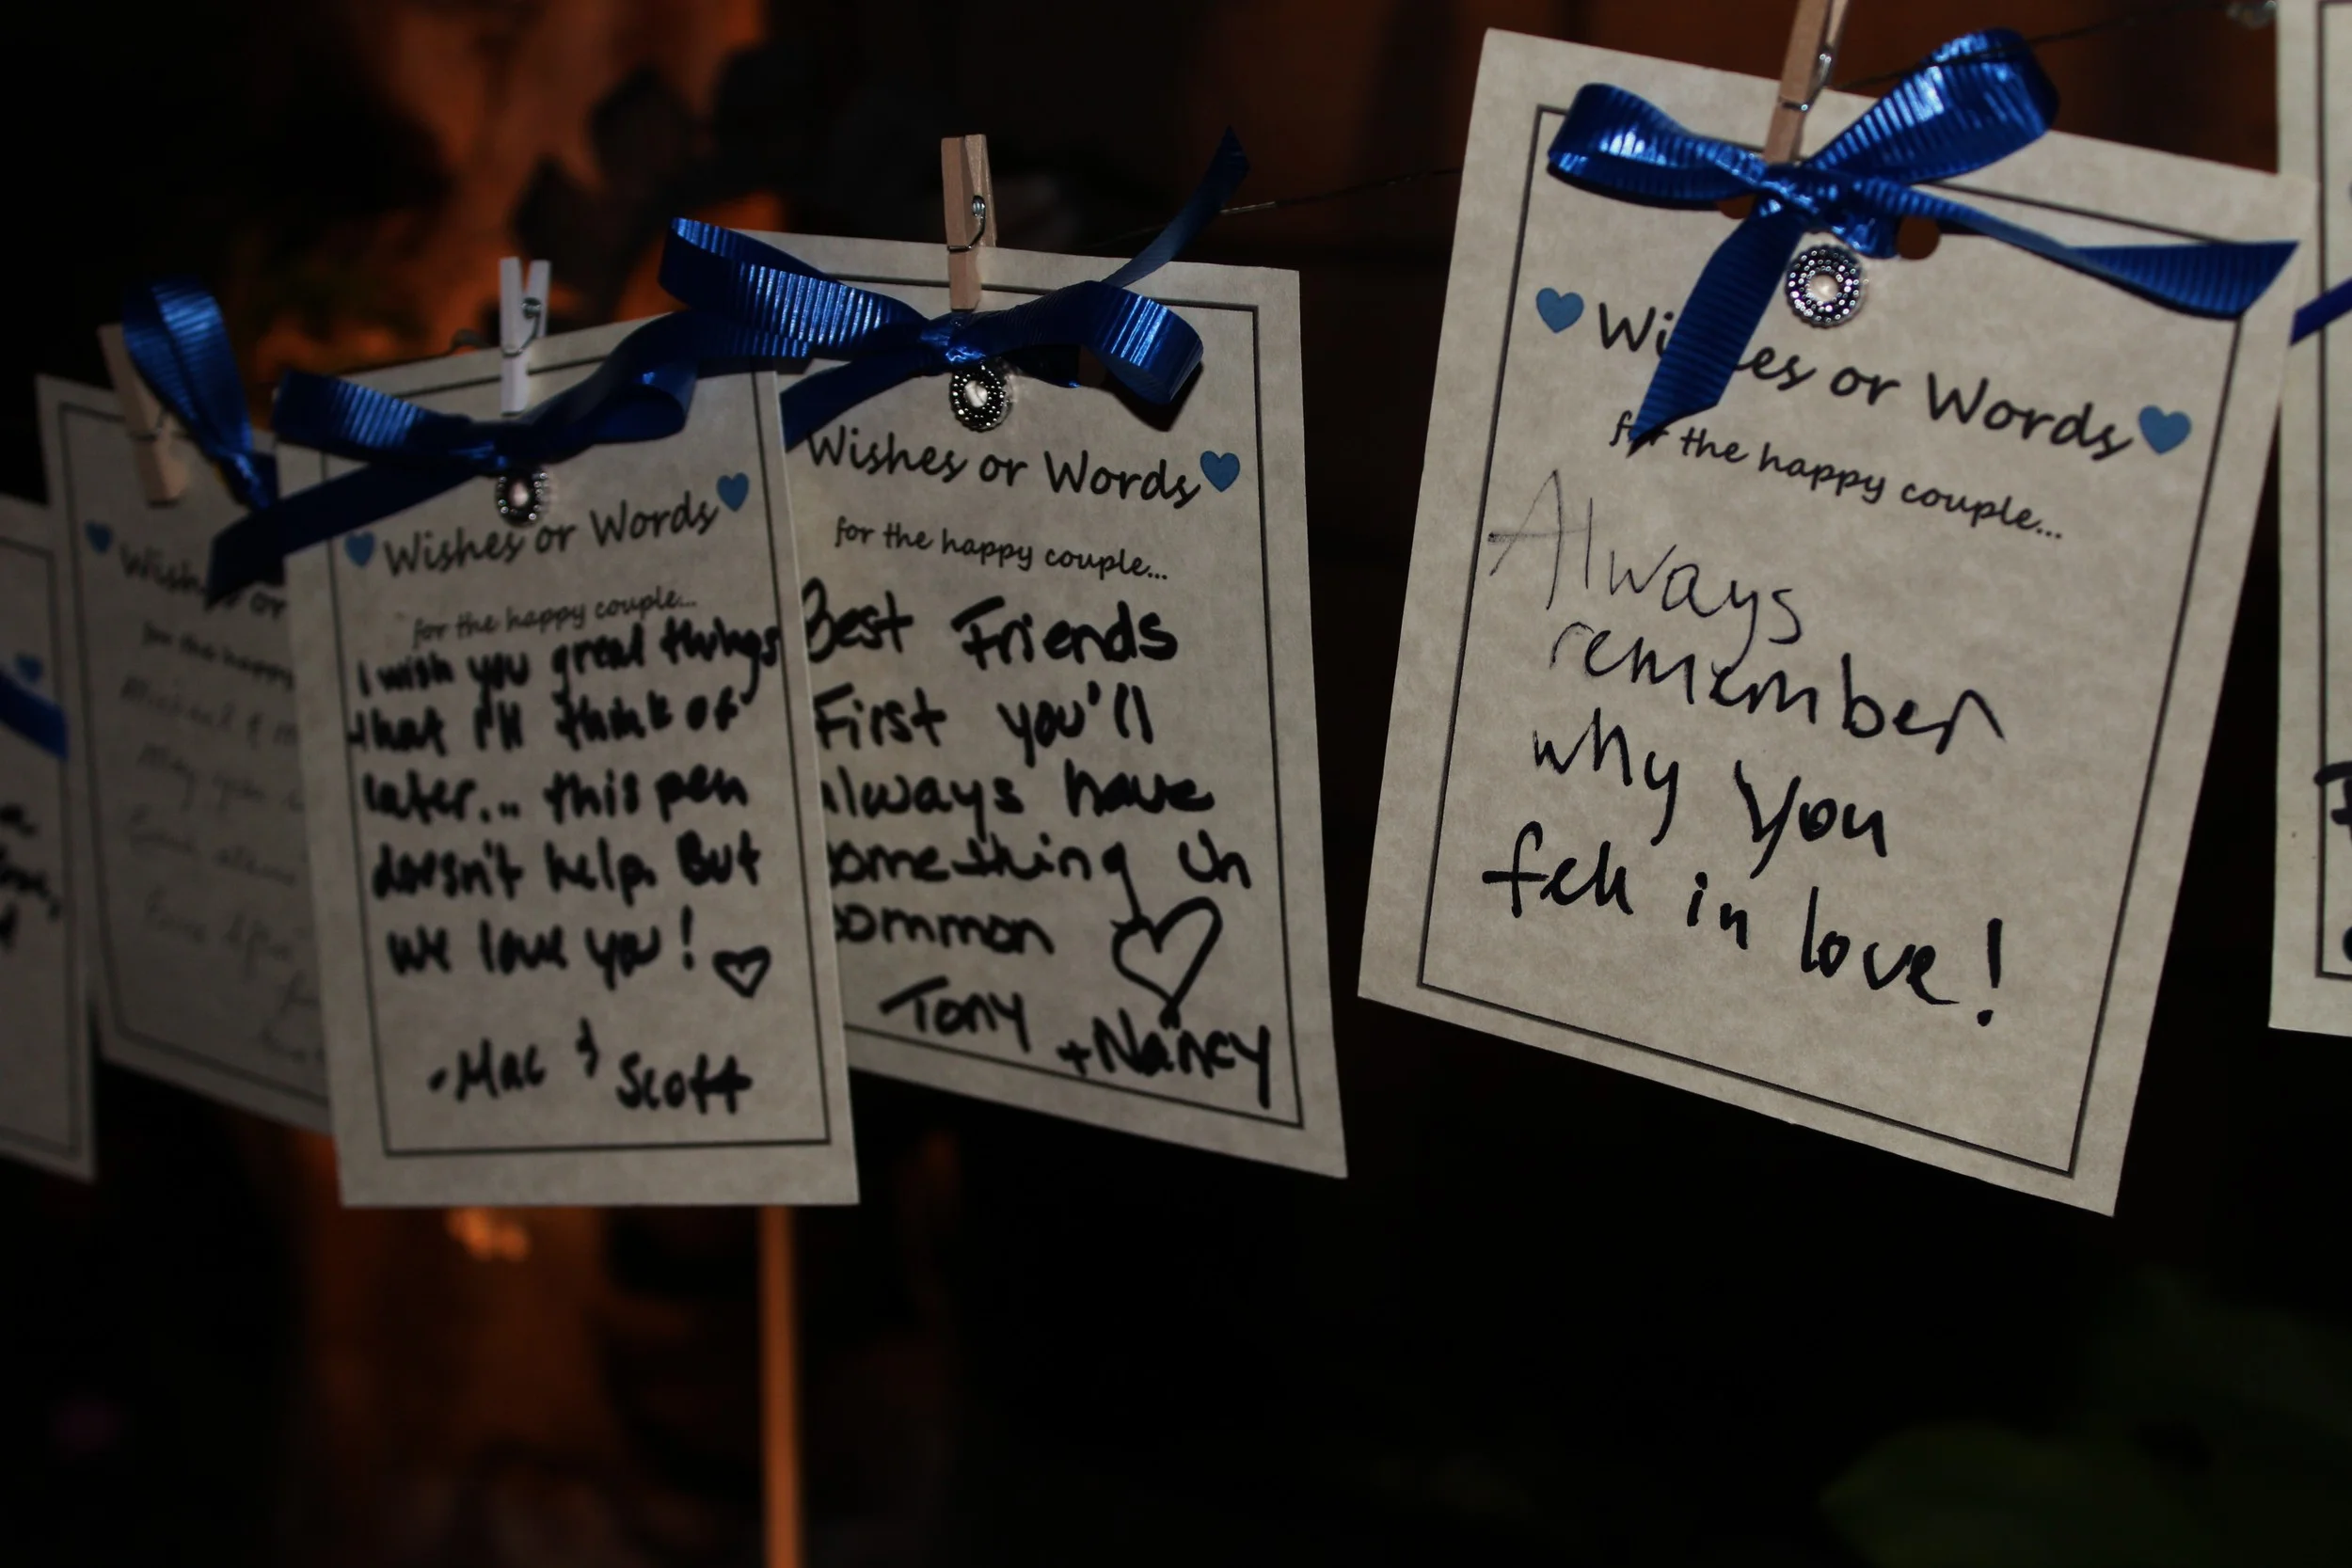 Wish or
for the happy
Michael &
May you
Wishes or Words
for the happy couple...
I wish you great things
that I'll think of
later... this pen
doesn't help. But
we love you!
-Mac & Scott
Wishes or Words
for the happy couple...
Best Friends
First you'll
always have
something in
common
Tony
+Nancy
Wi es or Words
for the happy couple...
Always
remember
why you
fell in love!